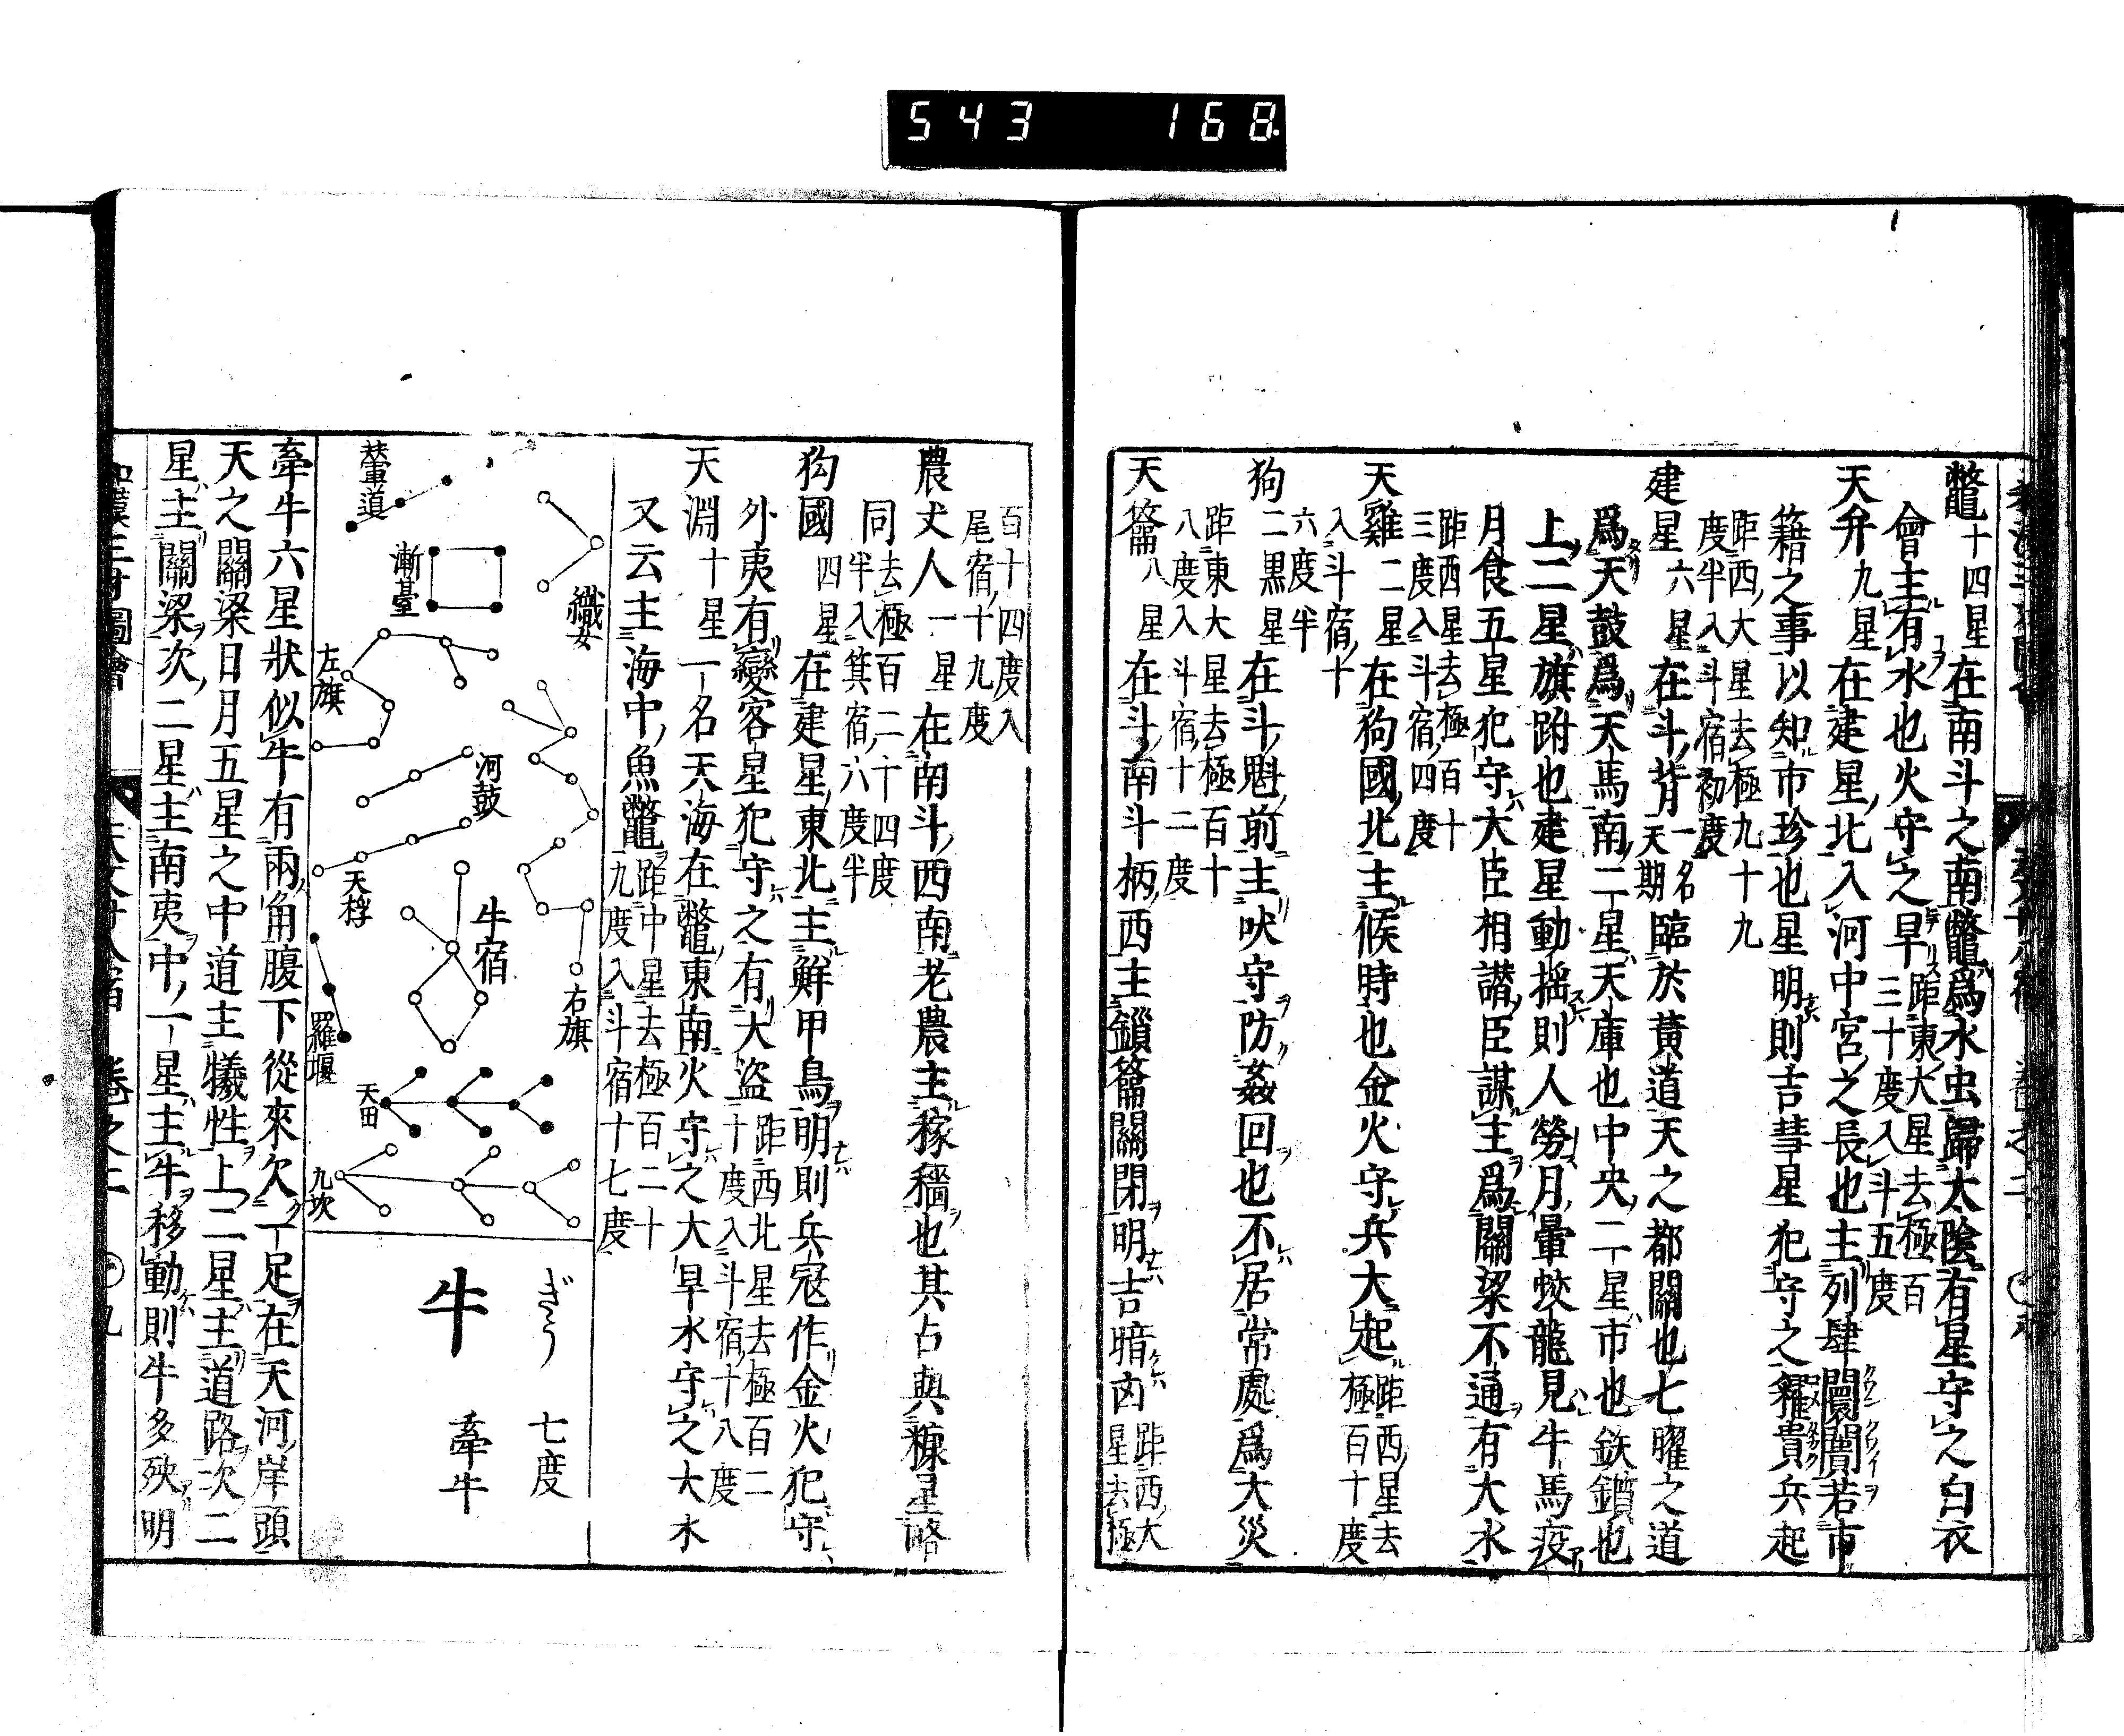 543 168
鼈十四星在南斗之南鼈爲水虫歸太陰有星守之白衣
會主有水也火守之旱距東大星去極百
三十度入斗五度
天弁九星在建星北入河中宮之長也主列肆闤闠若市
籍之事以知市珍也星明則吉彗星犯守之糴貴兵起
距西大星去極九十九
度半入斗宿初度
建星六星在斗背一名
天期臨於黃道天之都關也七曜之道
爲天鼓爲天馬南二星天庫也中央二星市也鈇鑕也
上二星旗跗也建星動搖則人勞月暈蛟龍見牛馬疫
月食五星犯守大臣相譖臣謀主爲關梁不通有大水
距西星去極百十
三度入斗宿四度
天雞二星在狗國北主候時也金火守兵大起距西星去
極百十度
入斗宿十
六度半
狗二黒星在斗魁前主吠守防姦回也不居常處爲大災
距東大星去極百十
八度入斗宿十二度
天籥八星在斗南斗柄西主鎖籥關閉明吉暗凶距西大
星去極
百十四度入
尾宿十九度
農丈人一星在南斗西南老農主稼穡也其占與糠星略
同去極百二十四度
半入箕宿六度半
狗國四星在建星東北主鮮甲鳥明則兵寇作金火犯守
外夷有變客星犯守之有大盜距西北星去極百二
十度入斗宿十八度
天淵十星一名天海在鼈東南火守之大旱水守之大水
又云主海中魚鼈距中星去極百二十
九度入斗宿十七度
輦道
漸臺
織女
左旗
河鼓
天桴
牛宿
右旗
羅堰
天田
九坎
ぎう 七度
牛 牽牛
牽牛六星狀似牛有兩角腹下從來欠一足在天河岸頭
天之關梁日月五星之中道主犧牲上二星主道路次二
星主關梁次二星主南夷中一星主牛移動則牛多殃明
和漢三才圖會 天文廿八宿 卷之二 九